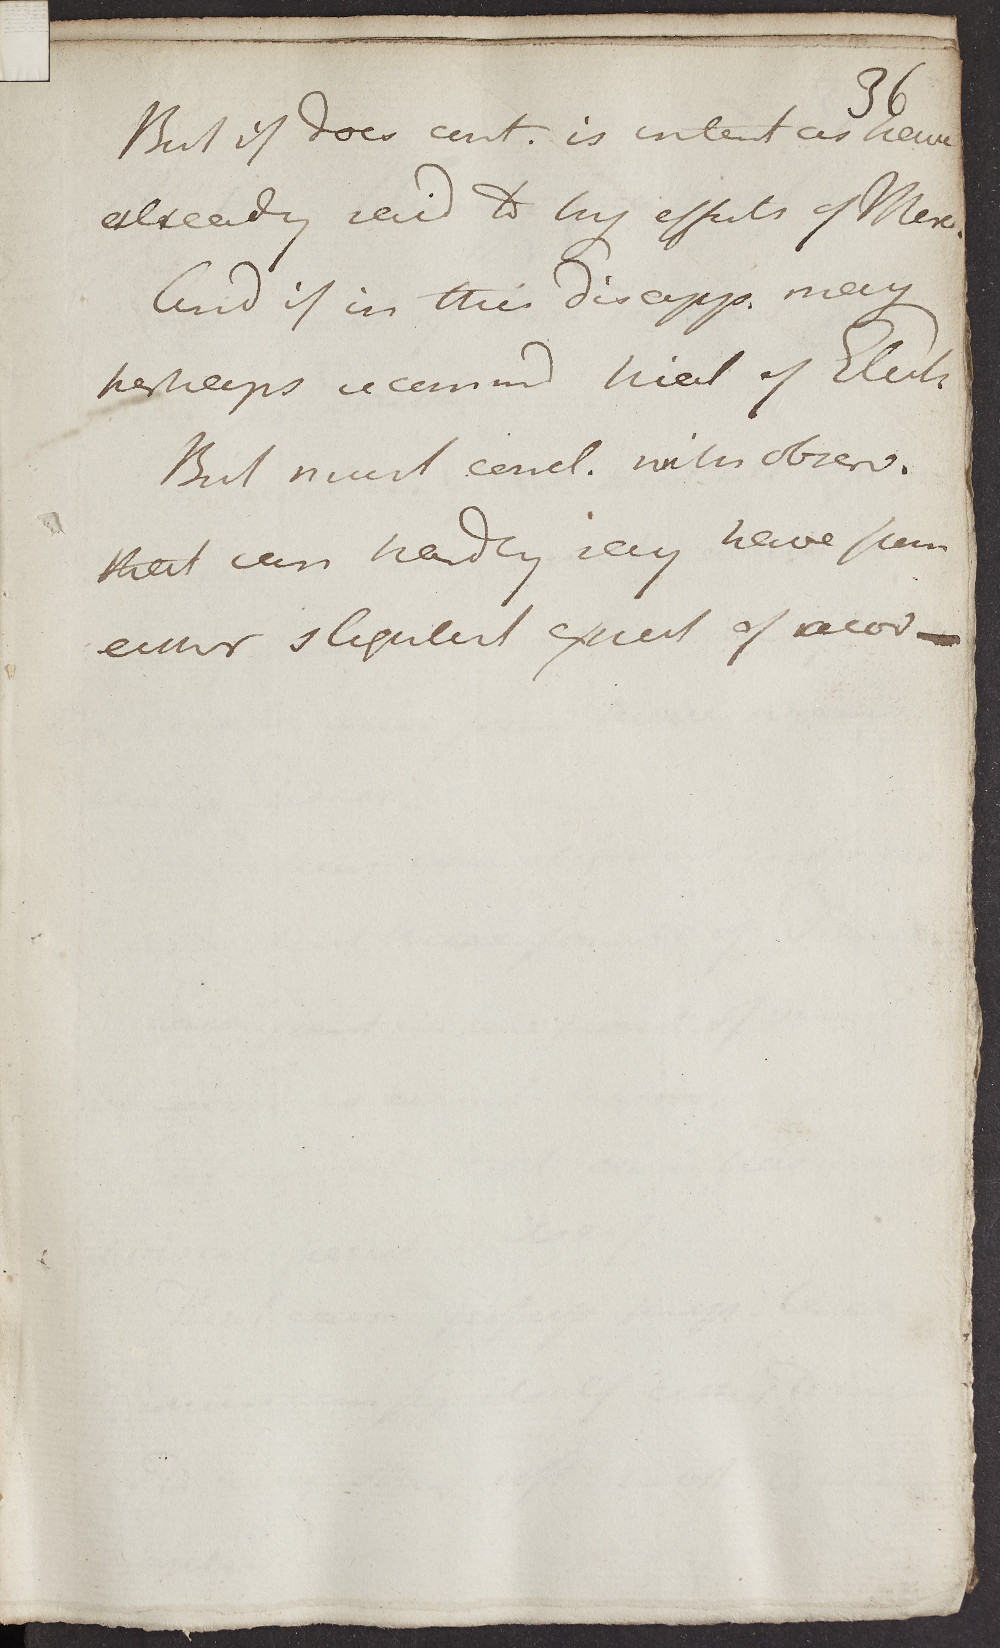 36
But if does cont. is intent as have
already said to try effects of Merc.
And if in this disapp. may
perhaps recommd trial of Electr
But must concl. with observ.
that can hardly say have from
either slightest expect of recov —